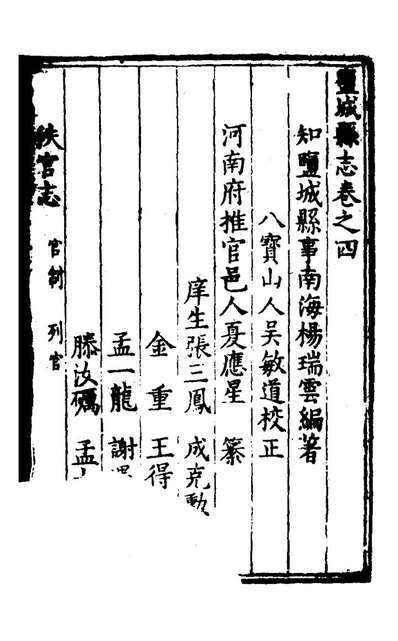 鹽城縣志卷之四
知鹽城縣事南海楊瑞雲編著
八寶山人吳敏道校正
河南府推官邑人夏應星 纂
庠生張三鳳 成克勳
金重 王得
孟一龍 謝
滕汝礪 孟
秩官志 官制 列官